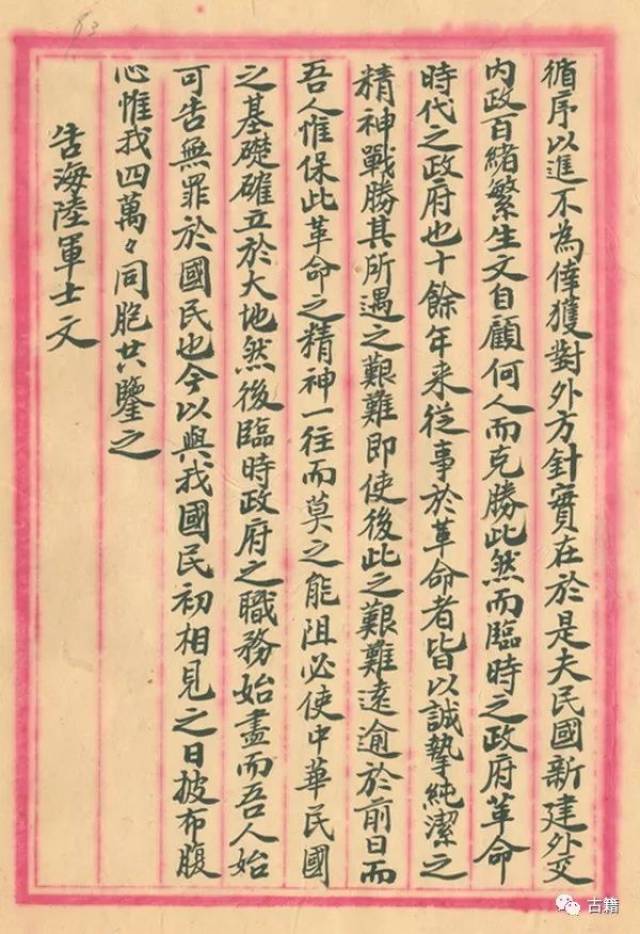 循序以進不為倖獲對外方針實在於是夫民國新建外交
内政百緒繁生文自顧何人而克勝此然而臨時之政府革命
時代之政府也十餘年来從事於革命者皆以誠摯純潔之
精神戰勝其所遇之艱難即使後此之艱難遠逾於前日而
吾人惟保此革命之精神一往而莫之能阻必使中華民國
之基礎確立於大地然後臨時政府之職務始盡而吾人始
可告無罪於國民也今以與我國民初相見之日披布腹
心惟我四萬々同胞共鑒之
告海陸軍士文
古籍